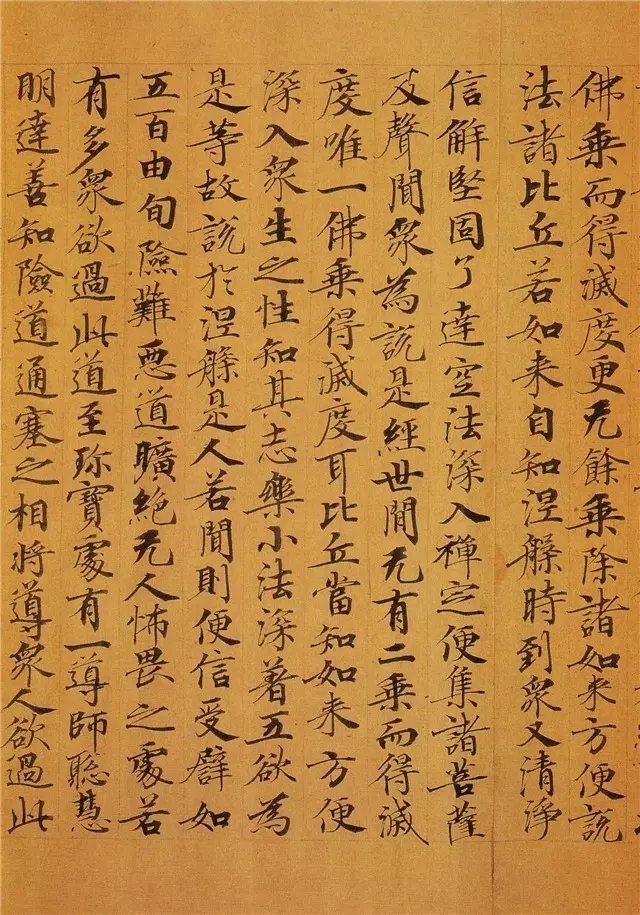 佛乘而得滅度更无餘乘除諸如来方便說
法諸比丘若如来自知涅槃時到衆又清淨
信解堅固了達空法深入禪定便集諸菩薩
及聲聞衆為說是經世間无有二乘而得滅
度唯一佛乘得滅度耳比丘當知如来方便
深入衆生之性知其志樂小法深著五欲為
是等故說於涅槃是人若聞則便信受譬如
五百由旬險難惡道曠絶无人怖畏之處若
有多衆欲過此道至珎寶處有一導師聡慧
明達善知險道通塞之相將導衆人欲過此